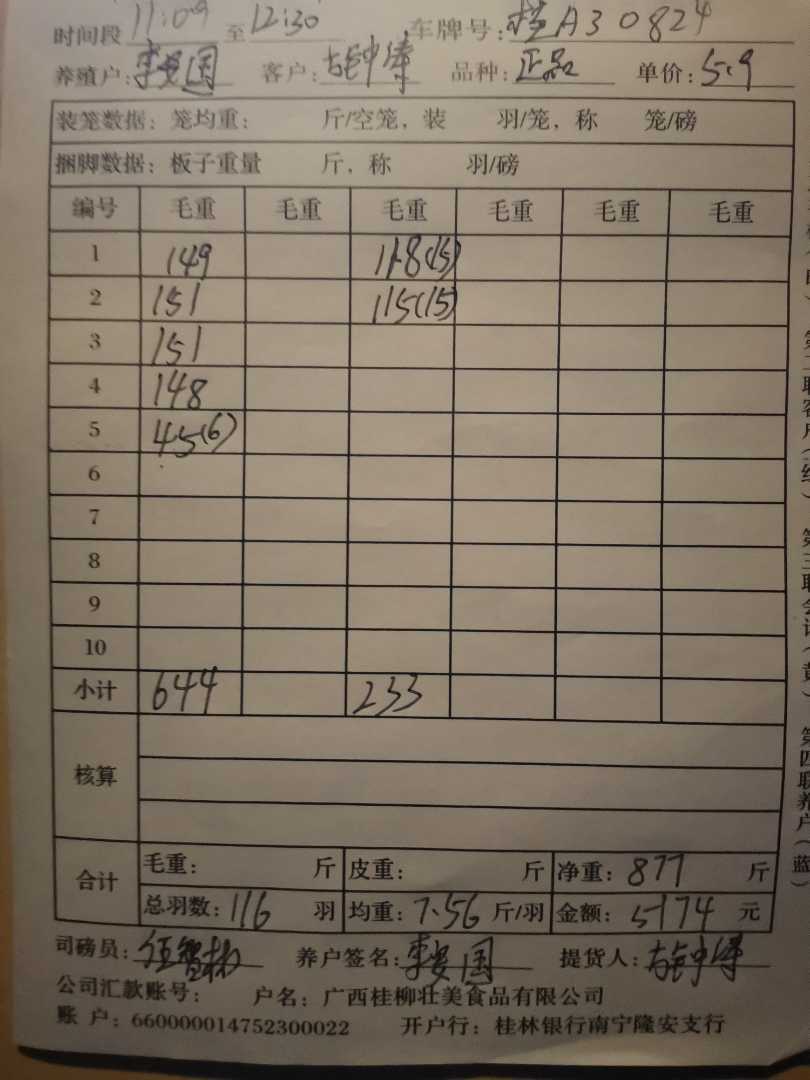 时间段 11:09 至 12:30 车牌号: 桂A30824
养殖户: 李 国 客户: 品种: 正品 单价: 5.9
装笼数据: 笼均重: 斤/空笼, 装 羽/笼, 称 笼/磅
捆脚数据: 板子重量 斤, 称 羽/磅
编号 毛重 毛重 毛重 毛重 毛重 毛重
1 149 118(15)
2 151 115(15)
3 151
4 148
5 45(6)
6
7
8
9
10
小计 644 233
核算
合计 毛重: 斤 皮重: 斤 净重: 877 斤
总羽数: 116 羽 均重: 7.56 斤/羽 金额: 5174 元
司磅员: 养户签名: 李 国 提货人:
公司汇款账号: 户名: 广西桂柳壮美食品有限公司
账 户: 660000014752300022 开户行: 桂林银行南宁隆安支行
第三联会计(黄) 第四联养户(蓝)